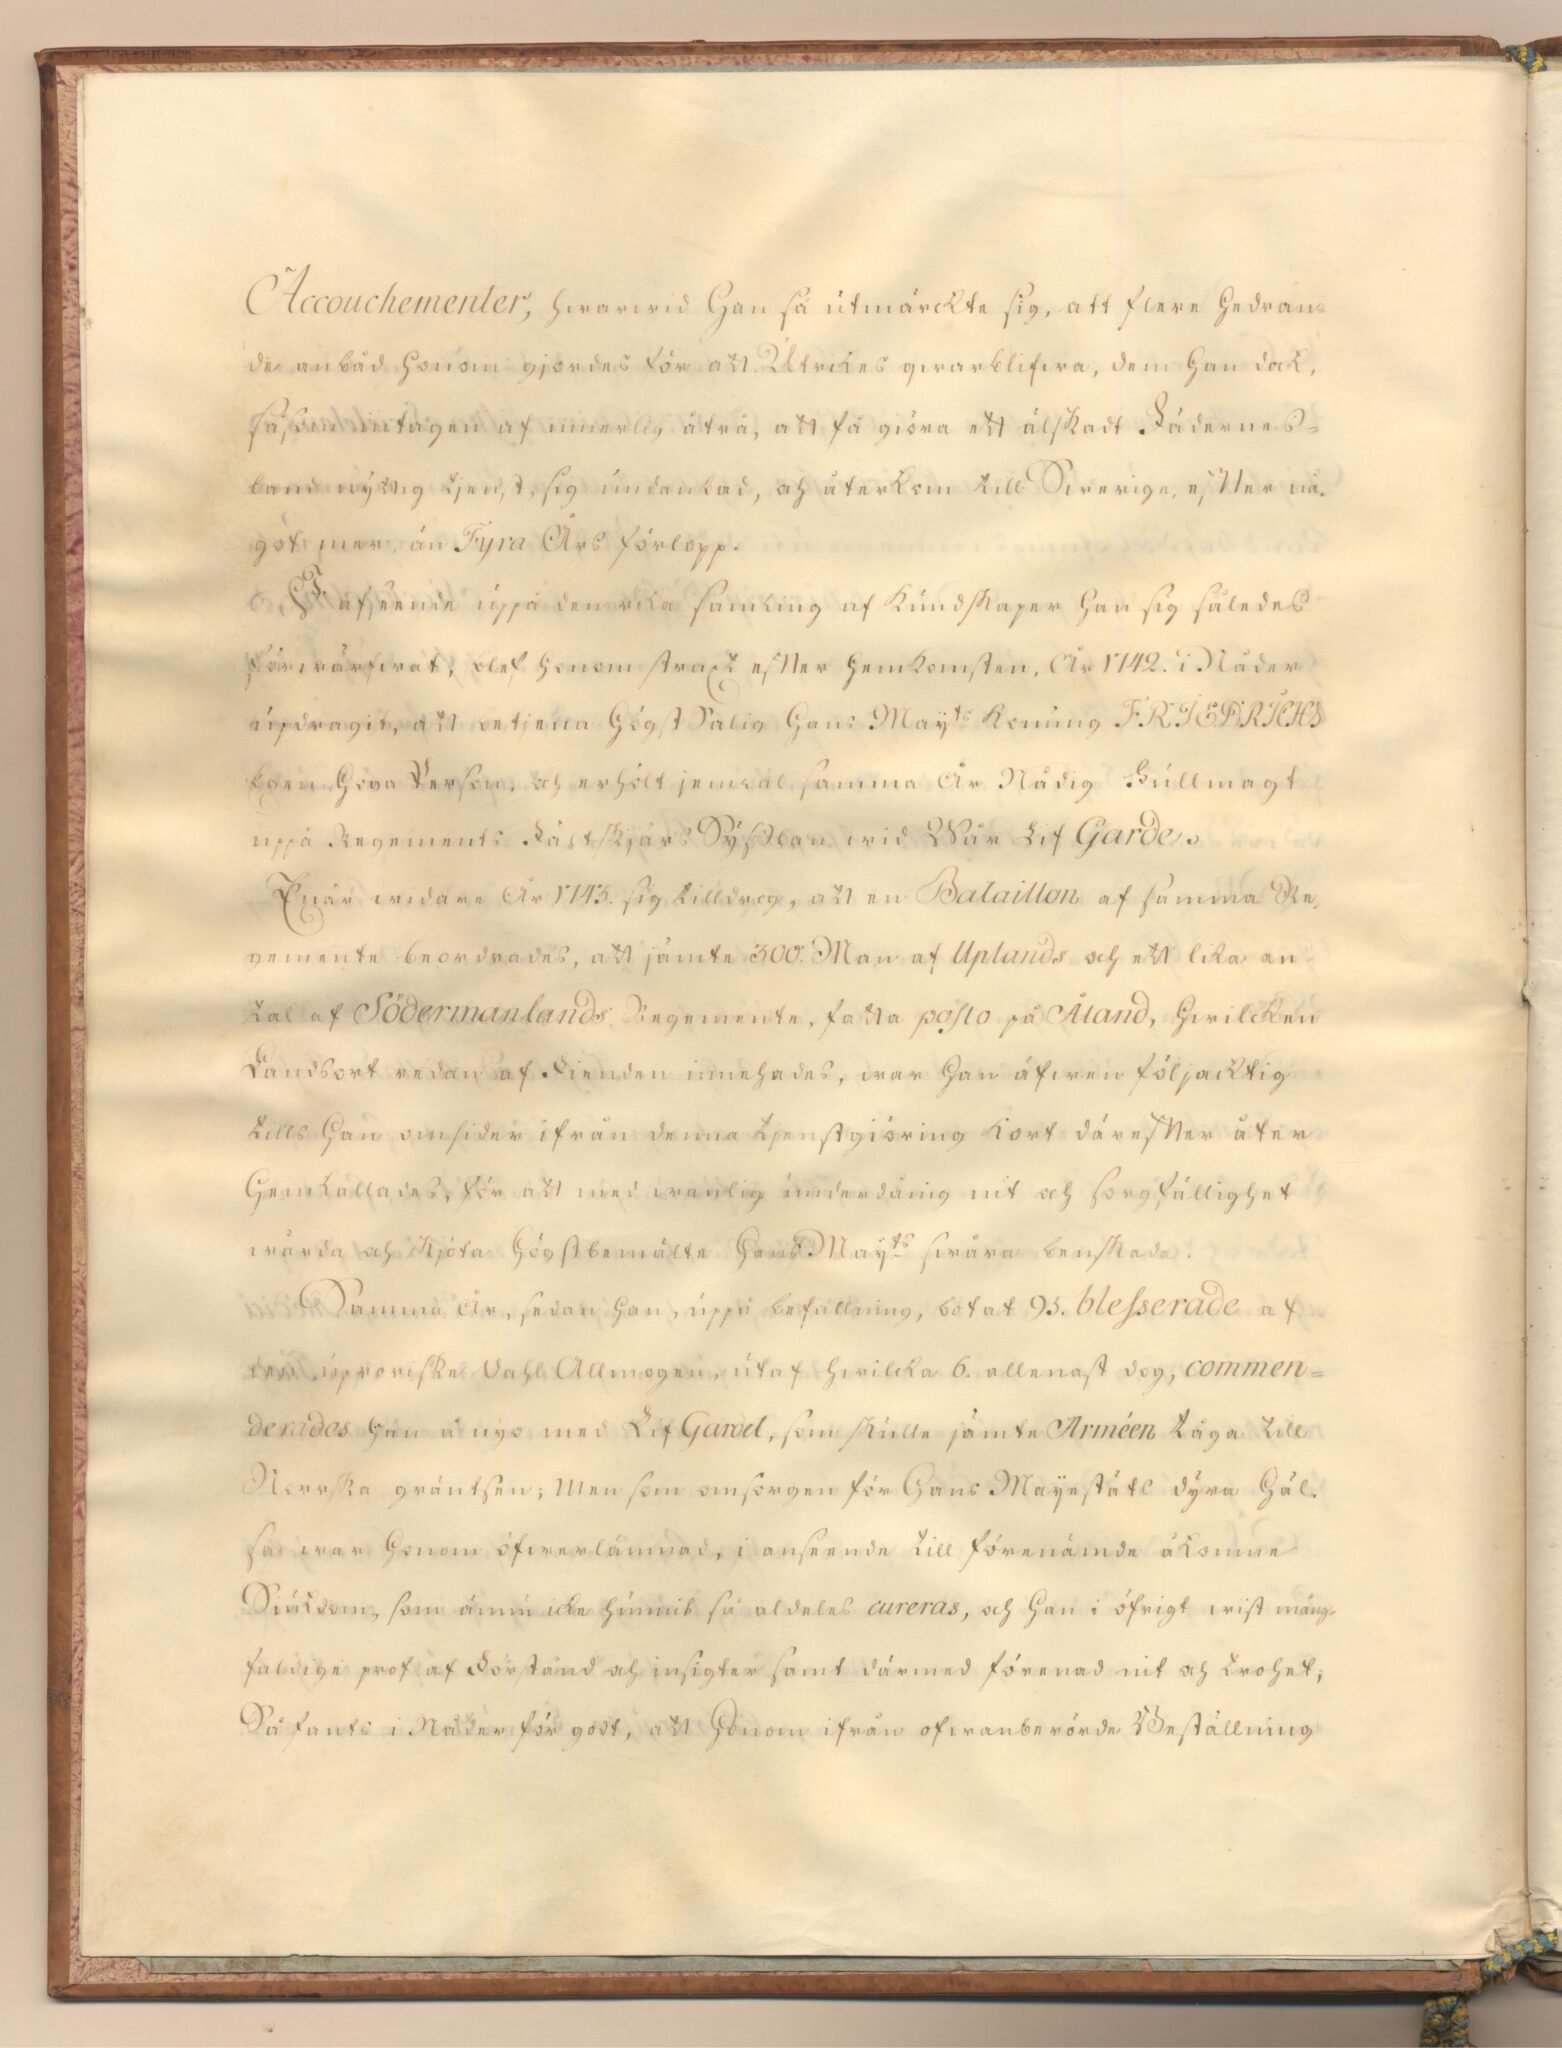 Accouchementer, hwarwid Han så utmärckte sig, att flere hedran=
de anbåd honom gjordes för att Utrikes qwarblifwa, dem han dock,
såsom intagen af innerlig åtrå, att få giöra ett älskadt Fädernes=
land nyttig tjenst, sig undanbad, och återkom till Swerige, efter nå-
got mer, än Fyra Års förlopp.
I afseende uppå den rika samling af Kundskaper han sig således
förwärfwat, blef honom straxt efter hemkomsten, År 1742. i Nåder
updragit, att betjena Högst Salig Hans Mayts Konung FRIEDRICHS
egen Höga Person, och erhölt jemwäl samma År Nådig Fullmagt
uppå Regements Fältskjärs Sysslan wid Wår Lif Garde.
Enär widare År 1743. sig tilldrog, att en Bataillon af samma Re-
gemente beordrades, att jämte 300. Man af Uplands och ett lika an-
tal af Södermanlands Regemente, fatta posto på Åland, hwilcken
Landsort redan af Fienden innehades, war Han äfwen följacktig
tills Han omsider ifrån denna tjenstgiöring kort därefter åter
hemkallades, för att med wanlig underdånig nit och sorgfällighet
wårda och skjöta Högstbemälte Hans Mayts swåra benskada.
Samma År, sedan Han, uppå befallning, botat 95. blesserade af
den uproriske Dahl Allmogen, utaf hwilcka 6. allenast dog, commen=
derades Han å nyo med Lif Gardet, som skulle jämte Arméen tåga till
Norrska gräntsen; Men som omsorgen för Hans Mayestäts dyra Häl-
sa war Honom öfwerlämnad, i anseende till förenämde åkomne
Siukdom, som ännu icke hunnit så aldeles cureras, och Han i öfrigt wist mång-
faldige prof af Förstånd och insigter samt därmed förenad nit och trohet,
Så fants i Nåder för godt, att Honom ifrån ofwanberörde Beställning